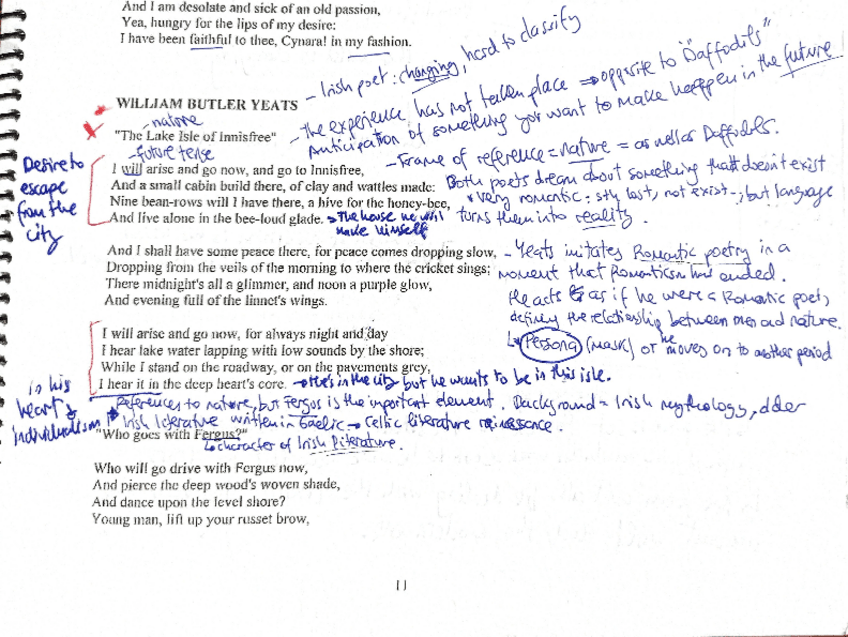 And I am desolate and sick of an old passion,
Yea, hungry for the lips of my desire:
I have been faithful to thee, Cynara! in my fashion.
- Irish poet: changing, hard to classify
WILLIAM BUTLER YEATS
- nature
"The Lake Isle of Innisfree"
- future tense
- The experience has not taken place → opposite to "Daffodils"
Anticipation of something you want to make happen in the future
- Frame of reference = nature = as well as Daffodils.
Both poets dream about something that doesn't exist
* Very romantic: sth lost, not exist, but language
turns them into reality.
Desire to
escape
from the
city
I will arise and go now, and go to Innisfree,
And a small cabin build there, of clay and wattles made:
Nine bean-rows will I have there, a hive for the honey-bee,
And live alone in the bee-loud glade.
→ The house he will
make himself
And I shall have some peace there, for peace comes dropping slow,
Dropping from the veils of the morning to where the cricket sings;
There midnight's all a glimmer, and noon a purple glow,
And evening full of the linnet's wings.
- Yeats imitates Romantic poetry in a
moment that Romanticism had ended.
He acts as if he were a Romantic poet,
the relationship between men and nature.
↳ Persona (mask) or he moves on to another period
I will arise and go now, for always night and day
I hear lake water lapping with low sounds by the shore;
While I stand on the roadway, or on the pavements grey,
I hear it in the deep heart's core.
→ He's in the city but he wants to be in this isle.
In his
heart
individualism
References to nature, but Fergus is the important element. Background = Irish mythology, older
Irish literature written in Gaelic → Celtic literature
"Who goes with Fergus?"
↳ character of Irish literature.
Who will go drive with Fergus now,
And pierce the deep wood's woven shade,
And dance upon the level shore?
Young man, lift up your russet brow,
11